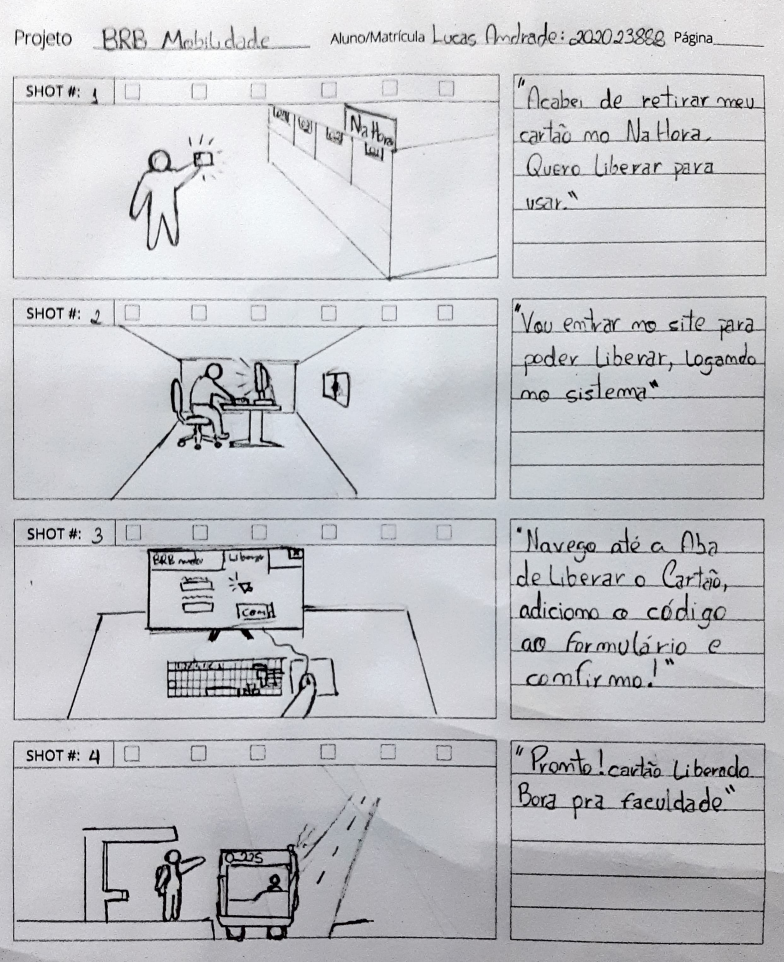 Projeto BRB Mobilidade Aluno/Matrícula Lucas Andrade: 202023888 Página
SHOT #: 1
Na Hora
"Acabei de retirar meu
cartão no Na Hora.
Quero Liberar para
usar."
SHOT #: 2
"Vou entrar no site para
poder Liberar, Logando
no sistema"
SHOT #: 3
BRB
"Navego até a Aba
de Liberar o Cartão,
adiciono o código
ao formulário e
confirmo!"
SHOT #: 4
"Pronto! cartão Liberado.
Bora pra faculdade"